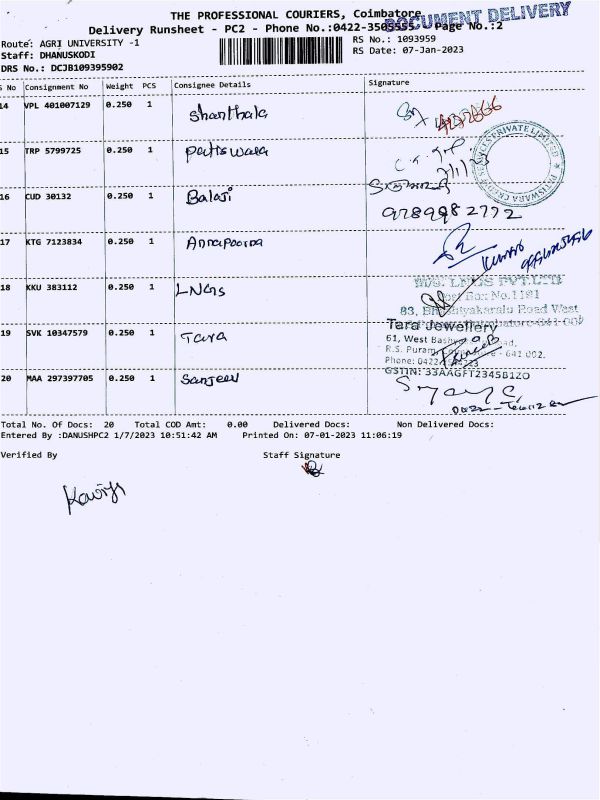 THE PROFESSIONAL COURIERS, Coimbatore
DOCUMENT DELIVERY
Delivery Runsheet - PC2 - Phone No.:0422-3505555 Page No.:2
Route: AGRI UNIVERSITY -1
RS No.: 1093959
Staff: DHANUSKODI
RS Date: 07-Jan-2023
DRS No.: DCJB109395902
S No Consignment No Weight PCS Consignee Details Signature
14 VPL 401007129 0.250 1 Shanthala
15 TRP 5799725 0.250 1 Patiswara
16 CUD 30132 0.250 1 Balaji
9789982772
17 KTG 7123834 0.250 1 Annapoorna
18 KKU 383112 0.250 1 LNGS
M/s. LNGS PVT.LTD
Post Box No.1181
83, Road West
19 SVK 10347579 0.250 1 Tara
Tara Jewellery
61, West
R.S. Puram, - 641 002.
Phone: 0422
GSTIN: 33AAGFT2345B1ZO
20 MAA 297397705 0.250 1 Sanjeev
Total No. Of Docs: 20 Total COD Amt: 0.00 Delivered Docs: Non Delivered Docs:
Entered By :DANUSHPC2 1/7/2023 10:51:42 AM Printed On: 07-01-2023 11:06:19
Verified By Staff Signature